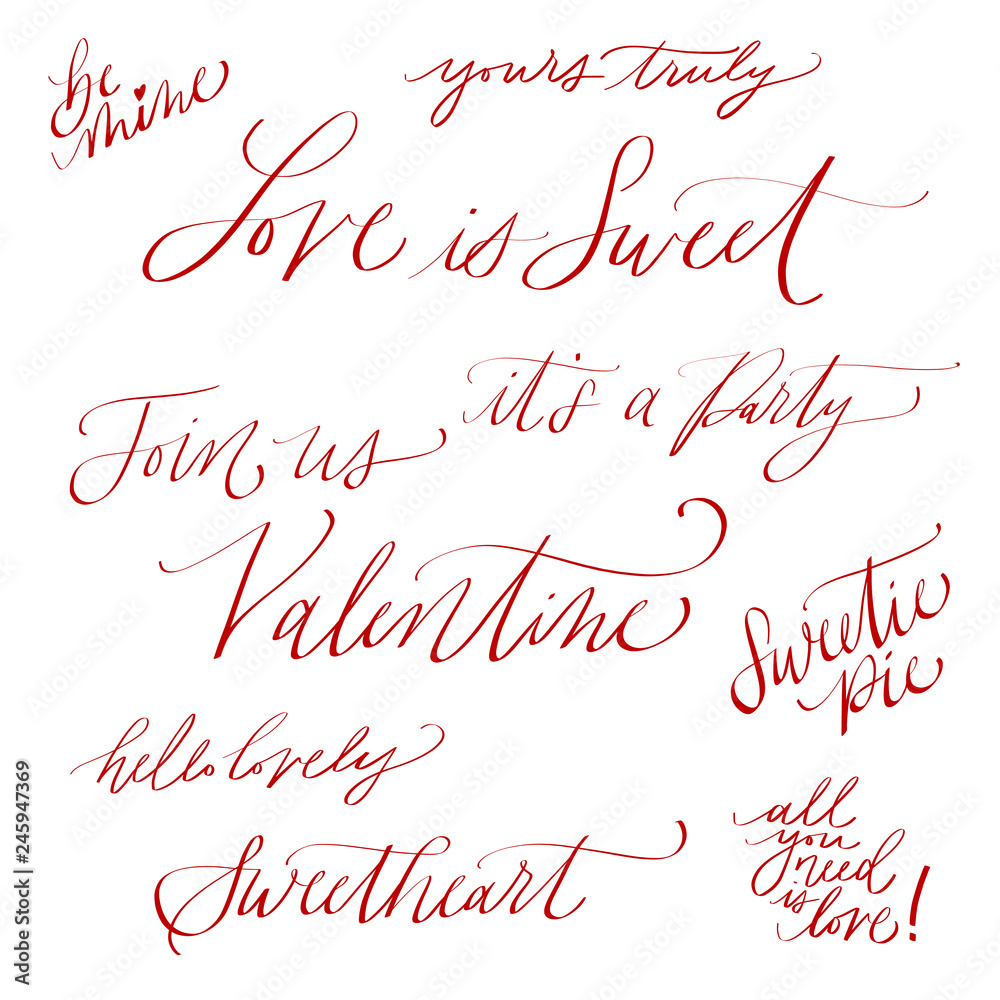 be
mine
yours truly
Love is Sweet
it's a Party
Join us
Valentine
Sweetie
pie
hello lovely
all
you
need
is
love!
Sweetheart
Adobe Stock | #245947369